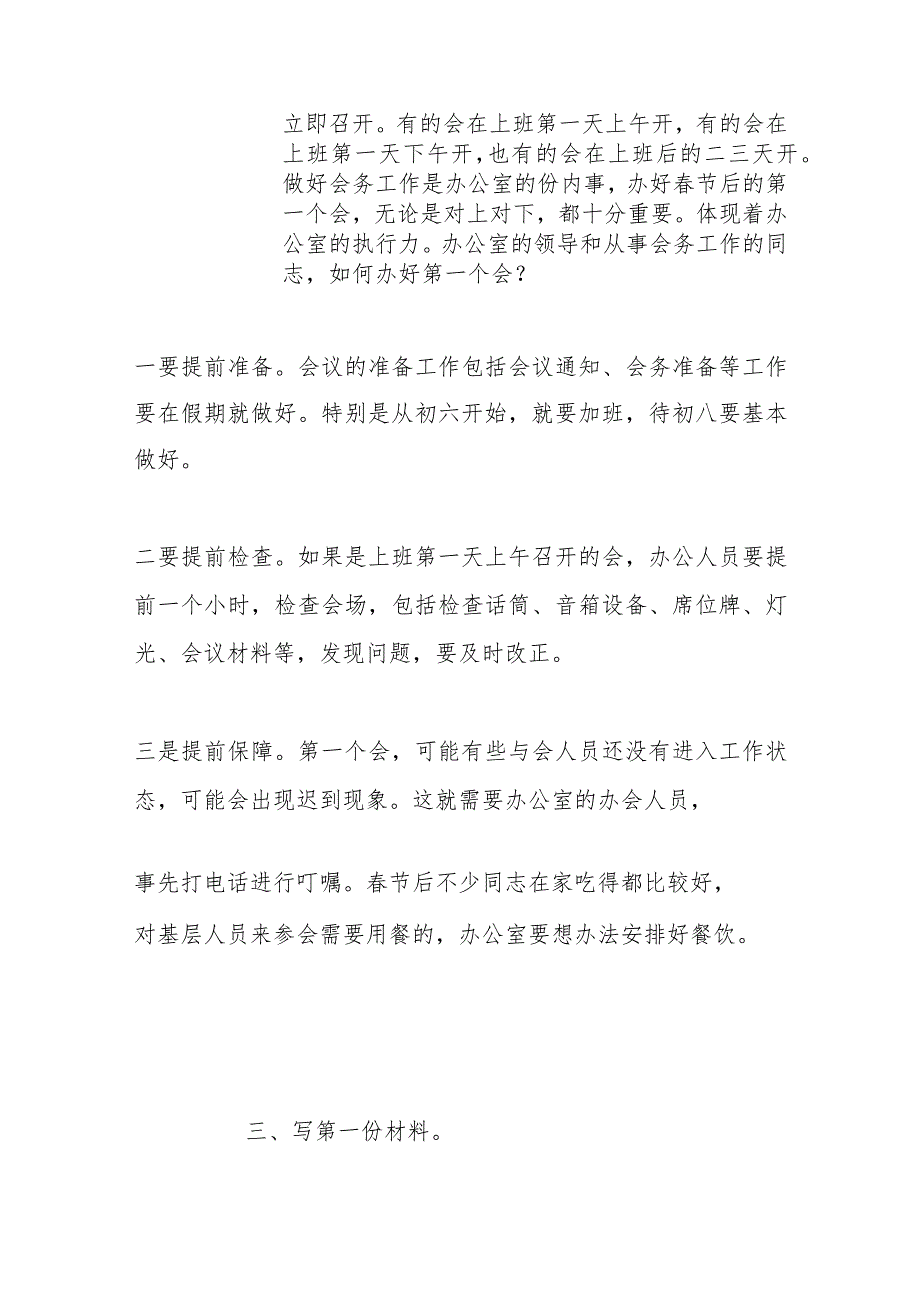 立即召开。有的会在上班第一天上午开，有的会在
上班第一天下午开，也有的会在上班后的二三天开。
做好会务工作是办公室的份内事，办好春节后的第
一个会，无论是对上对下，都十分重要。体现着办
公室的执行力。办公室的领导和从事会务工作的同
志，如何办好第一个会？
一要提前准备。会议的准备工作包括会议通知、会务准备等工作
要在假期就做好。特别是从初六开始，就要加班，待初八要基本
做好。
二要提前检查。如果是上班第一天上午召开的会，办公人员要提
前一个小时，检查会场，包括检查话筒、音箱设备、席位牌、灯
光、会议材料等，发现问题，要及时改正。
三是提前保障。第一个会，可能有些与会人员还没有进入工作状
态，可能会出现迟到现象。这就需要办公室的办会人员，
事先打电话进行叮嘱。春节后不少同志在家吃得都比较好，
对基层人员来参会需要用餐的，办公室要想办法安排好餐饮。
三、写第一份材料。